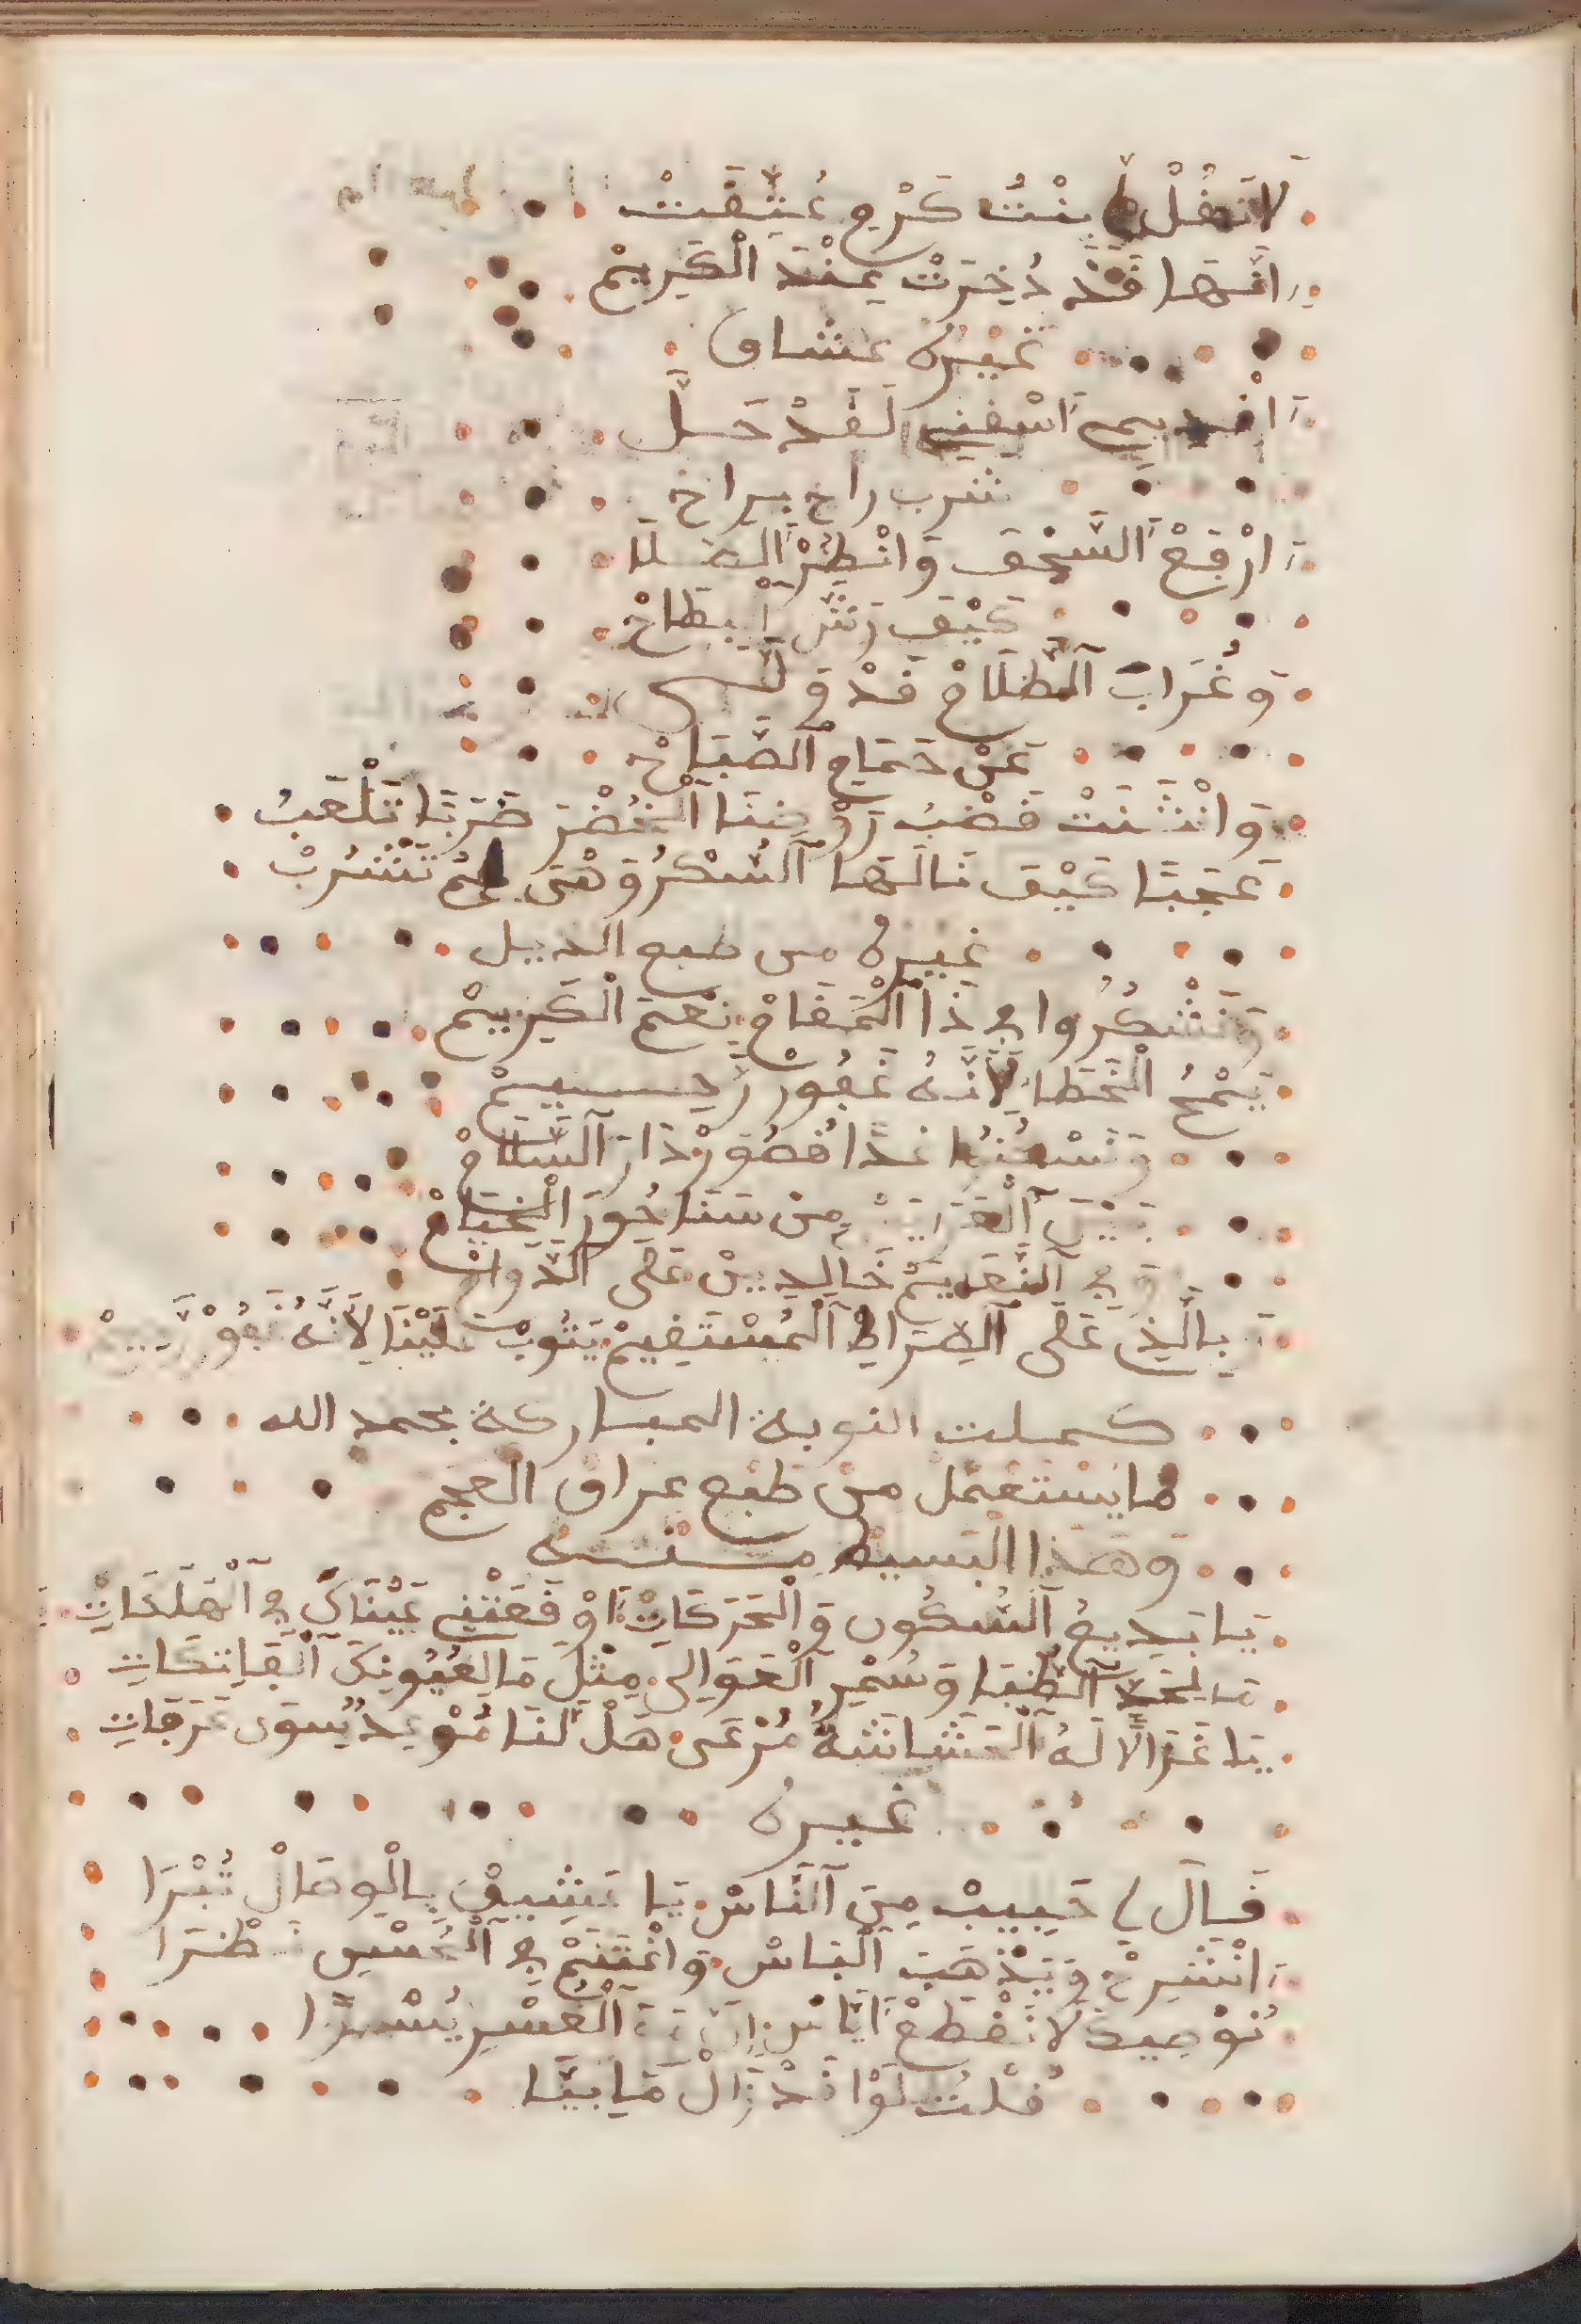 لَا تَقُلْ بِنْتُ كَرْمٍ عُتِّقَتْ
إِنَّهَا قَدْ ذُخِرَتْ عِنْدَ الْكَرِيمْ
غيره عشاق
أَنديمي أَسْقِني لَقَدْ حَلَّ
شرب راح براح
أَرْفَعْ السَّجْفَ وَانْظُرْ
كَيْفَ رَشَّ الْبِطَاحْ
وَغُرَابُ الظَّلَامْ قَدْ وَلَّى
عَنْ حَمَامِ الصَّبَاحْ
وَانْثَنَتْ قَضْبُ رَوْضِنَا الْخُضْرَ طَرَبًا تَلْعَبُ
عَجَبًا كَيْفَ نَالَهَا السُّكْرُ وَهْيَ لَمْ تَشْرَبْ
غيره من طبع الذيل
وَنَشْكُرُوا فِي ذَا الْمَقَامْ نِعَمَ الْكَرِيمْ
يَمْحُ الْخَطَا لِأَنَّهُ غَفُورْ رَحِيمْ
وَنَسْكُنُوا غَدًا قُصُورْ دَارَ السَّلَامْ
بَيْنَ مِنْ سَنَا حُورِ الْخِيَامْ
وَفِي النَّعِيمْ خَالِدِينْ عَلَى الدَّوَامْ
بِالَّذِي عَلَى الصِّرَاطِ الْمُسْتَقِيمْ يَتُوبْ عَلَيْنَا لِأَنَّهُ غَفُورْ رَحِيمْ
كملت النوبة المباركة بحمد الله
مَا يُسْتَعْمَل مِنْ طَبْعِ عراق العجم
وَهَذَا الْبَسِيطْ مِنْهُ
يَا بَدِيعَ السُّكُونِ وَالْحَرَكَاتْ أَوْقَعَتْنِي عَيْنَاكَ فِي الْهَلَكَاتِ
مَا لِحَدِّ الظُّبَا وَسُمْرِ الْعَوَالِي مِثْلَ مَا لِعُيُونِكَ الْفَاتِكَاتِ
يَا غَزَالًا لَهُ الْحَشَاشَةُ مَرْعَى هَلْ لَنَا مَوْعِدٌ سِوَى عَرَفَاتِ
غيره
قَالَ لِي حَبِيبْ مِنَ النَّاسْ يَا عَشِيقْ بِالْوِصَالْ تُبْرَا
أَنْشَرِحْ وَيَذْهَبَ الْبَاسْ وَاغْتَنِمْ فِي الْحُسْنِ نَظْرَا
تَوْحِيدْ لَا تَقْطَعْ أَيَّاسْ إِنَّ مَعَ الْعُسْرِ يُسْرًا
قُلْتُ لَوْ قَدْ زَالْ مَا بِيَّا